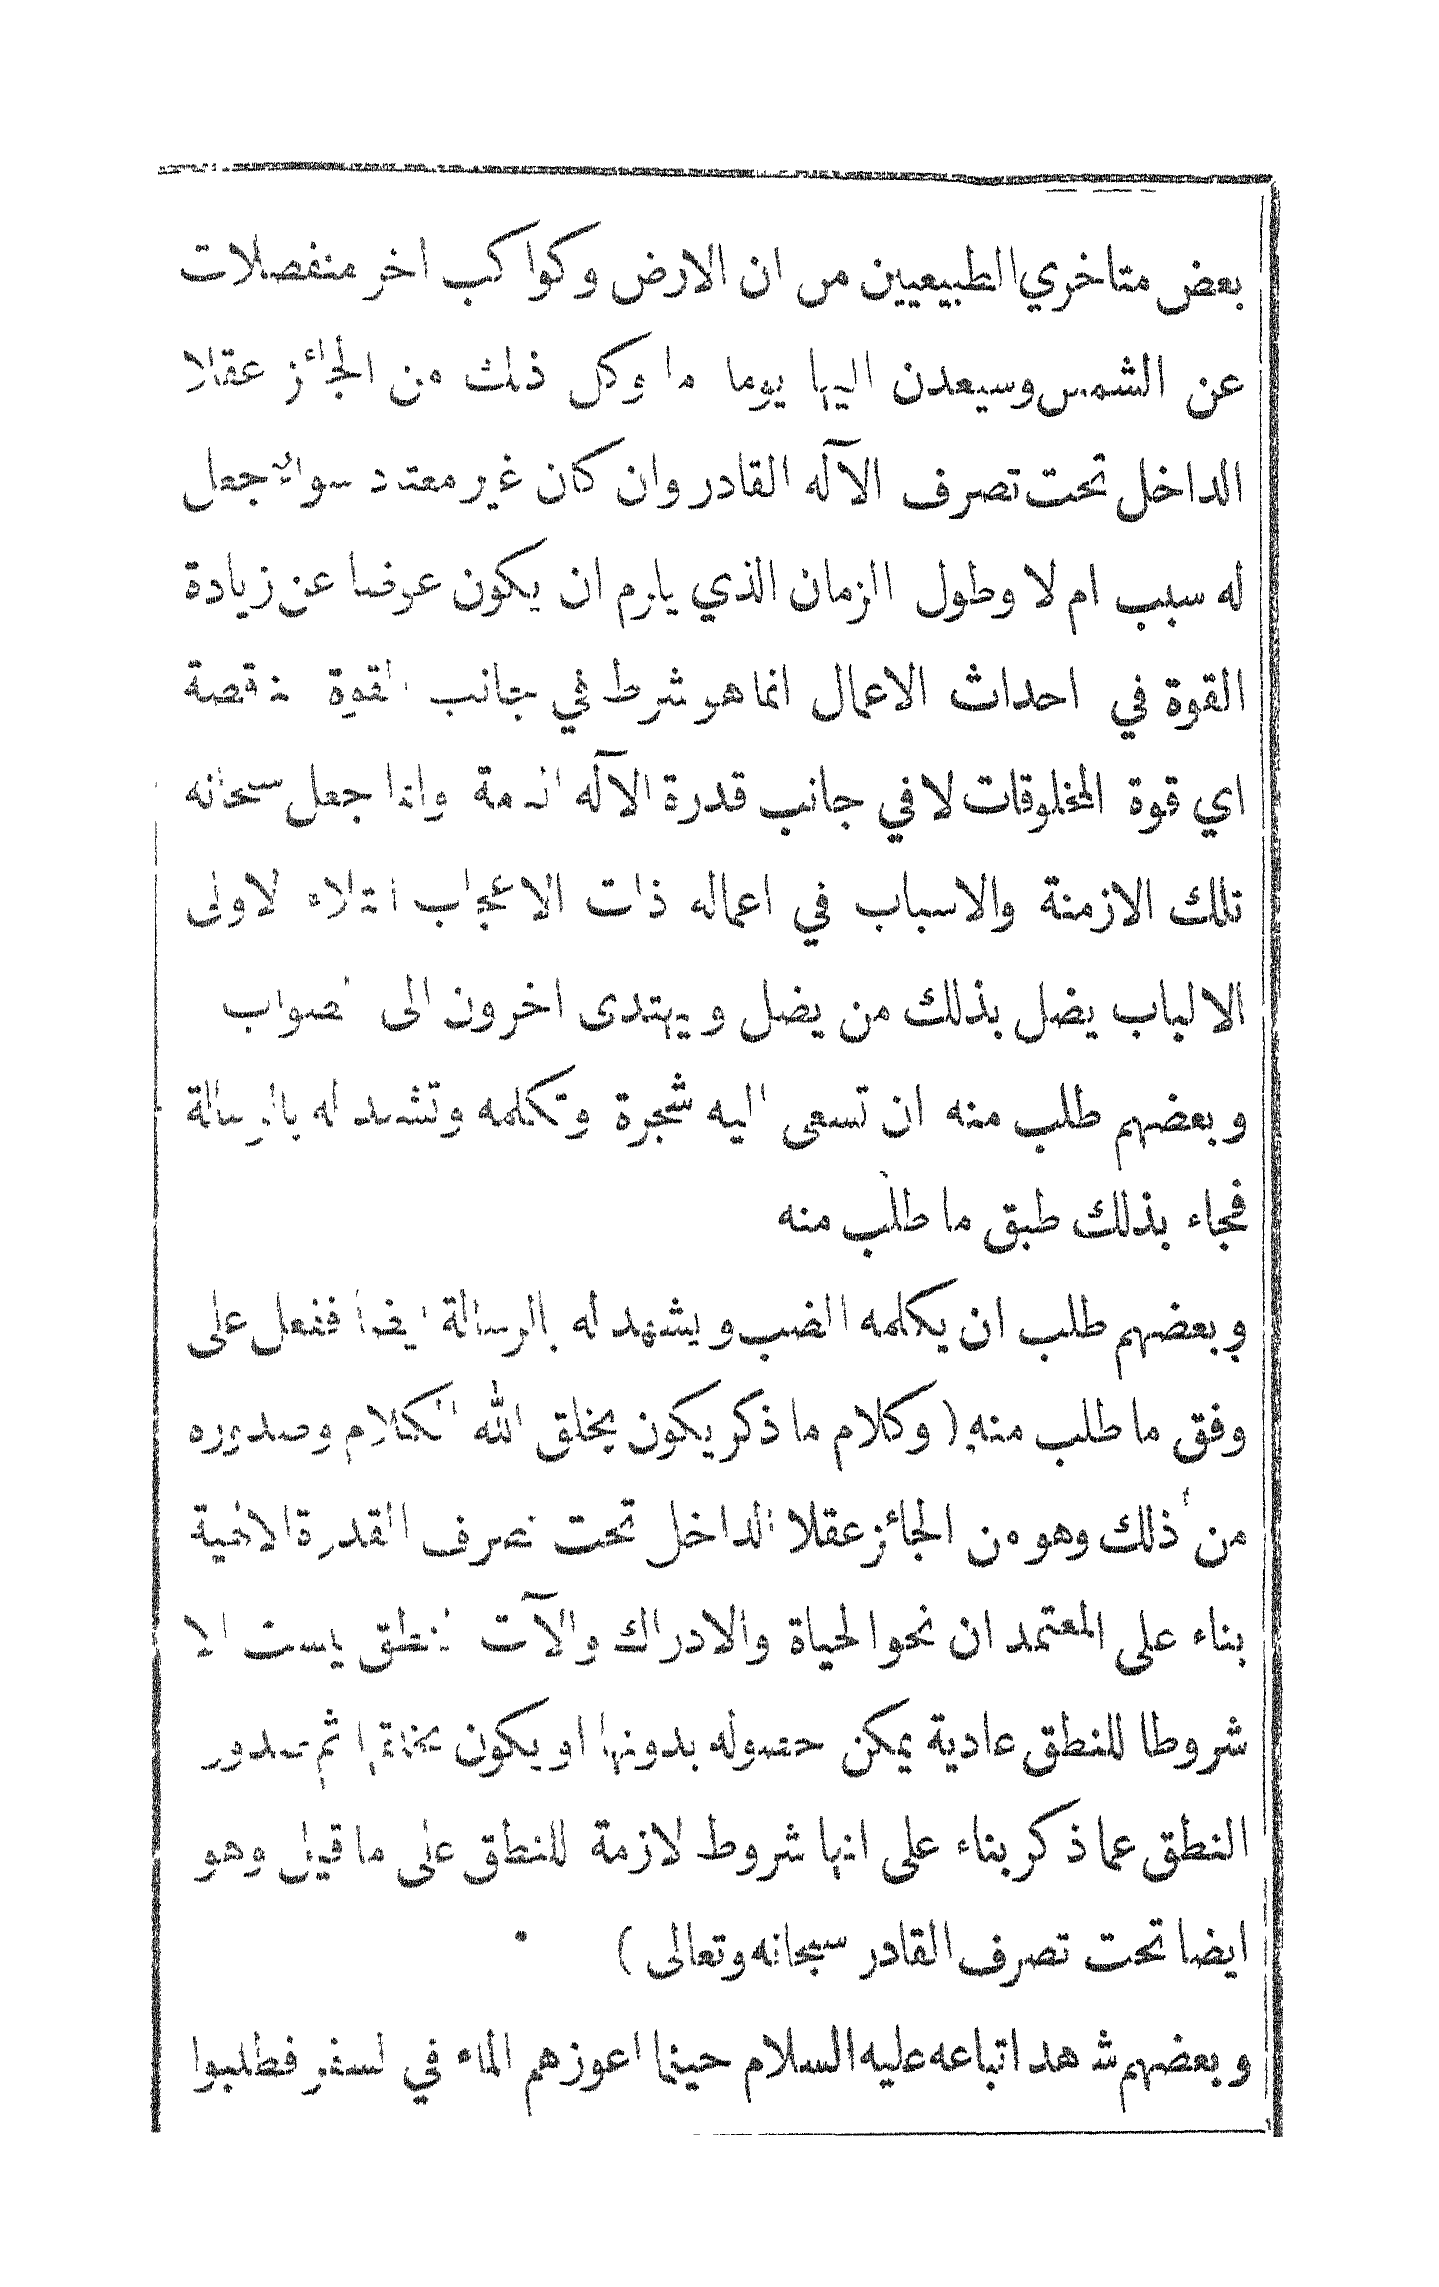 بعض متاخري الطبيعيين من ان الارض وكواكب اخر منفصلات
عن الشمس وسيعدن اليها يوما ما وكل ذلك من الجائز عقلا
الداخل تحت تصرف الآله القادر وان كان غير معتد سواء جعل
له سبب ام لا وطول الزمان الذي يلزم ان يكون عوضا عن زيادة
القوة في احداث الاعمال انما هو شرط في جانب القوة الناقصة
اي قوة المخلوقات لا في جانب قدرة الآله التامة وانما جعل سبحانه
تلك الازمنة والاسباب في اعماله ذات الاعجاب ابتلاء لاولى
الالباب يضل بذلك من يضل ويهتدى اخرون الى الصواب
وبعضهم طلب منه ان تسعى اليه شجرة وتكلمه وتشهد له بالرسالة
فجاء بذلك طبق ما طلب منه
وبعضهم طلب ان يكلمه الضب ويشهد له بالرسالة ايضا ففعل على
وفق ما طلب منه (وكلام ما ذكر يكون بخلق الله الكلام وصدوره
من ذلك وهو من الجائز عقلا الداخل تحت تصرف القدرة الالهية
بناء على المعتمد ان نحو الحياة والادراك والآت النطق ليست الا
شروطا للنطق عادية يمكن حصوله بدونها او يكون بخلقها ثم صدور
النطق عما ذكر بناء على انها شروط لازمة للنطق على ما قيل وهو
ايضا تحت تصرف القادر سبحانه وتعالى)
وبعضهم شاهد اتباعه عليه السلام حينما اعوزهم الماء في السفر فطلبوا